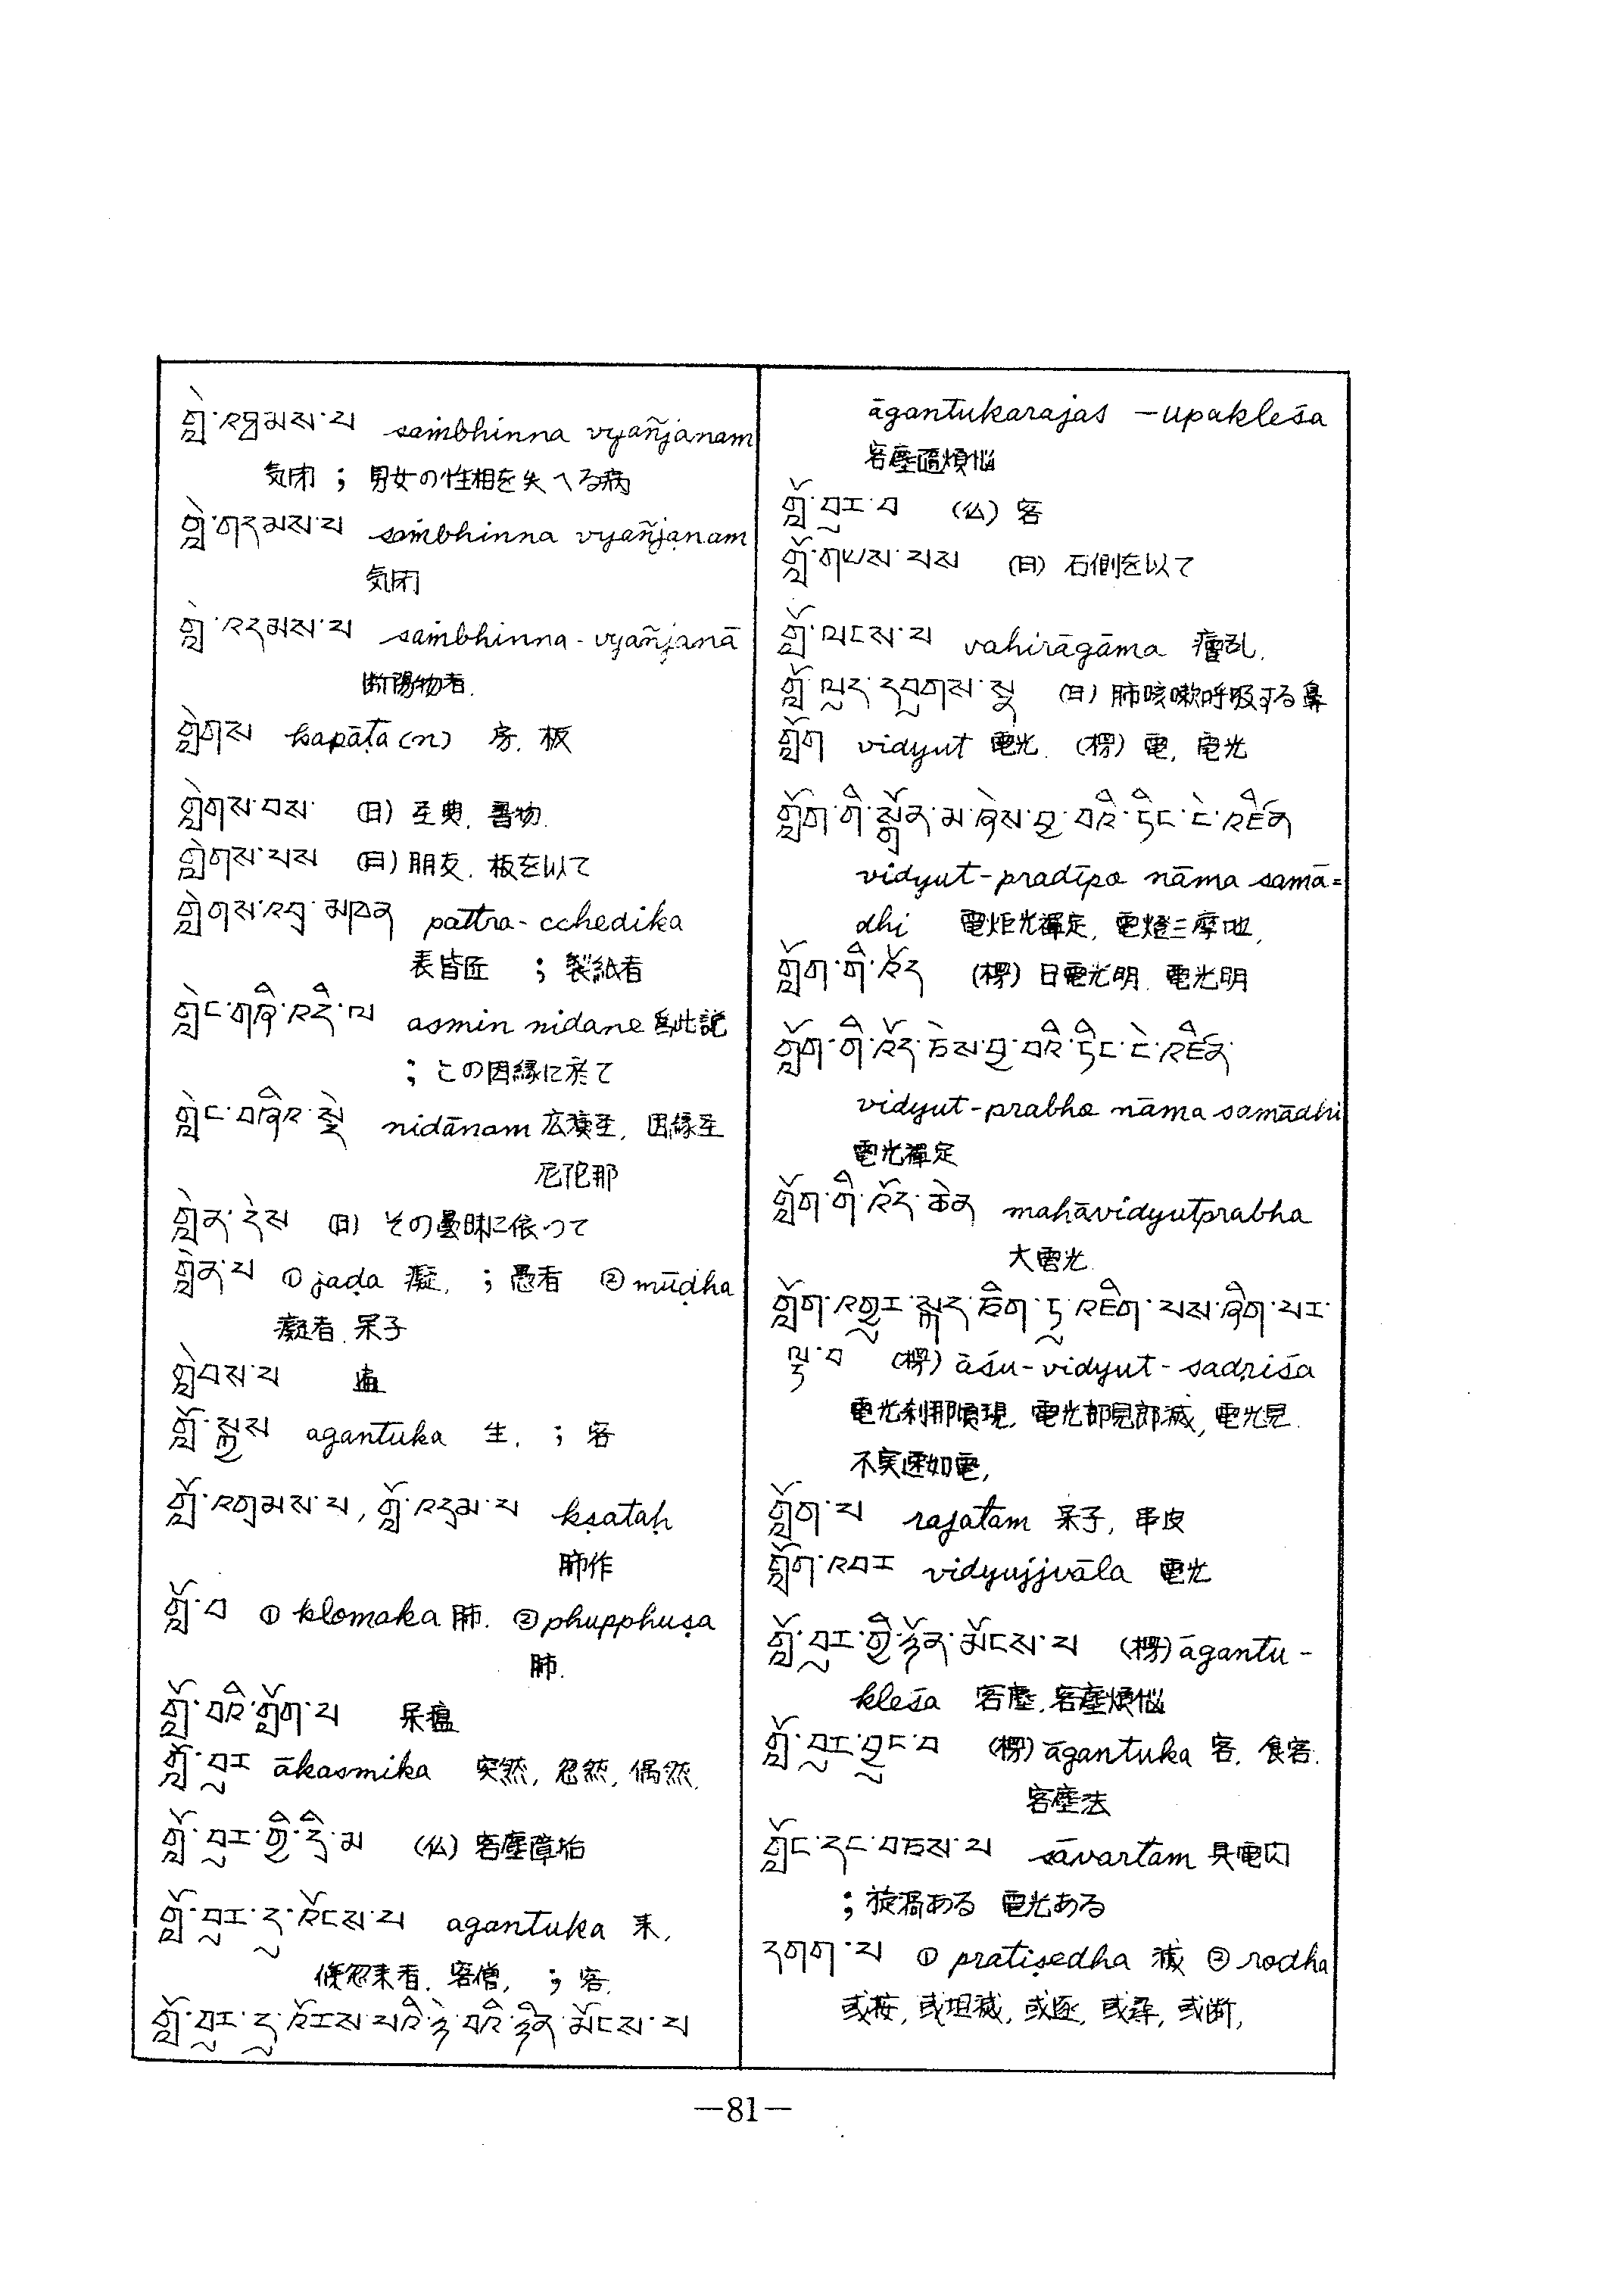 གླེ་འདམས་པ sambhinna vyañjanam
気閉 ; 男女の性相を失へる病
གླེ་གདམས་པ sambhinna vyañjanam
気閉
གླེ་འདམས་པ sambhinna-vyañjanā
断陽物者.
གླེགས kapāṭa (n) 房, 板
གླེགས་བས་ (日) 至典, 書物.
གླེགས་པས (日) 朋友, 板を以て
གླེགས་འབུ་མཁན pattra-cchedika
表皆匠 ; 製紙者
གླེང་གཞི་འདི་ལ asmin nidane 爲此説
; この因縁に於て
གླེང་བཞིར་སྡེ nidānam 広演至, 因縁至
尼陀那
གླེན་ངེས (日) その曇昧に依つて
གླེན་པ ① jaḍa 癡, ; 愚者 ② mūḍha
癡者, 呆子
གླེབས་པ
གློ་སྐྱས agantuka 生, ; 客
གློ་འགམས་པ, གློ་འདམ་པ kṣataḥ
肺作
གློ་བ ① klomaka 肺. ② phupphuṣa
肺.
གློ་བའི་གློག་པ 呆瘟
གློ་བུར ākasmika 突然, 忽然, 偶然,
གློ་བུར་གྱི་དྲི་མ (仏) 客塵障垢
གློ་བུར་དུ་འོངས་པ agantuka 来,
倏忽来者, 客僧, ; 客.
གློ་བུར་དུ་འོངས་པའི་ཉེ་བའི་ཉོན་མོངས་པ
āgantukarajas -upakleśa
客塵隨煩悩
གློ་བུར་བ (仏) 客
གློ་གཡས་པས (日) 右側を以て
གློ་ཡངས་པ vahirāgāma 瘤乱.
གློ་ལུད་དབུགས་སྣ (日) 肺咳嗽呼吸する鼻
གློག vidyut 電光. (楞) 電, 電光
གློག་གི་སྒྲོན་མ་ཞེས་བྱ་བའི་ཏིང་ངེ་འཛིན
vidyut-pradīpa nāma samā=
dhi 電炬光禪定, 電燈三摩地,
གློག་གི་འོད (楞) 日電光明, 電光明
གློག་གི་འོད་ཅེས་བྱ་བའི་ཏིང་ངེ་འཛིན་
vidyut-prabha nāma samādhi
電光禪定
གློག་གི་འོད་ཆེན mahāvidyutprabha
大電光.
གློག་འགྱུར་སྐད་ཅིག་ཏུ་འཇིག་པས་ཞིག་པར་
ལྟ་བ (楞) āśu-vidyut-sadṛiśa
電光刹那頃現, 電光郎見郎滅, 電光見.
不実速如電,
གློག་པ rajatam 呆子, 串皮
གློག་འབར vidyujjvāla 電光
གློ་བུར་གྱི་ཉོན་མོངས་པ (楞) āgantu-
kleśa 客塵, 客塵煩悩
གློ་བུར་བྱུང་བ (楞) āgantuka 客, 食客.
客塵法
གློང་དང་བཅས་པ sāvartam 具電閃
; 旋渦ある 電光ある
དགག་པ ① pratiṣedha 滅 ② rodha
或按, 或坦滅, 或逐, 或尋, 或断,
—81—